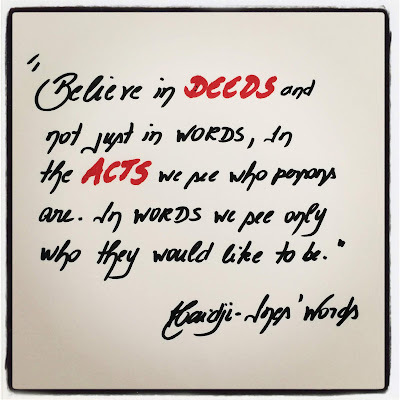 "Believe in DEEDS and
not just in WORDS, In
the ACTS we see who persons
are. In WORDS we see only
who they would like to be."
Words